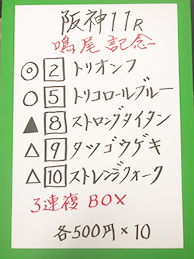 阪神11R
鳴尾記念
◎ 2 トリオンフ
○ 5 トリコロールブルー
▲ 8 ストロングタイタン
△ 9 タツゴウゲキ
△ 10 ストレンジクォーク
3連複 BOX
各500円×10